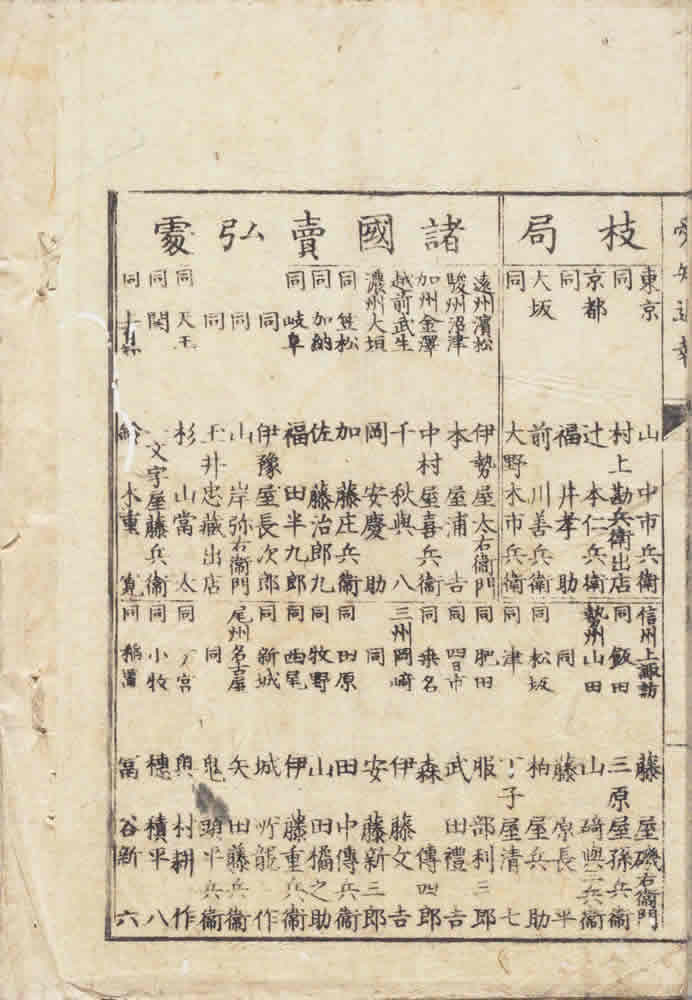 枝局
東京 山中市兵衛
同 村上勘兵衛出店
京都 辻本仁兵衛
同 福井孝助
大坂 前川善兵衛
同 大野木市兵衛
諸國賣弘處
遠州濱松 伊勢屋太右衞門
駿州沼津 本屋浦吉
加州金澤 中村屋喜兵衞
越前武生 千秋與八
濃州大垣 岡安慶助
同 笠松 加藤庄兵衞
同 加納 佐藤治郎九
同 岐阜 福田半九郎
同 伊豫屋長次郎
同 山岸弥右衞門
同 玉井忠藏出店
同 天王 杉山當太
同 関 一文字屋藤兵衞
同 鈴木重寛
信州上諏訪 藤屋磯右衞門
同 飯田 三原屋孫兵衞
勢州山田 山碕與三兵衞
同 同 藤原長平
同 松坂 柏屋兵助
同 津 子屋清七
同 肥田 服部利三郎
同 四日市 武田禮吉
同 桑名 森傳四郎
三州岡﨑 伊藤文吉
同 同 安藤新三郎
同 田原 田中傳兵衞
同 牧野 山田橘之助
同 西尾 伊藤重兵衞
同 新城 城所龍作
尾州名古屋 矢田藤兵衞
同 鬼頭平兵衞
同 一ノ宮 奥村耕作
同 小牧 穂積平八
同 稲置 冨谷新六